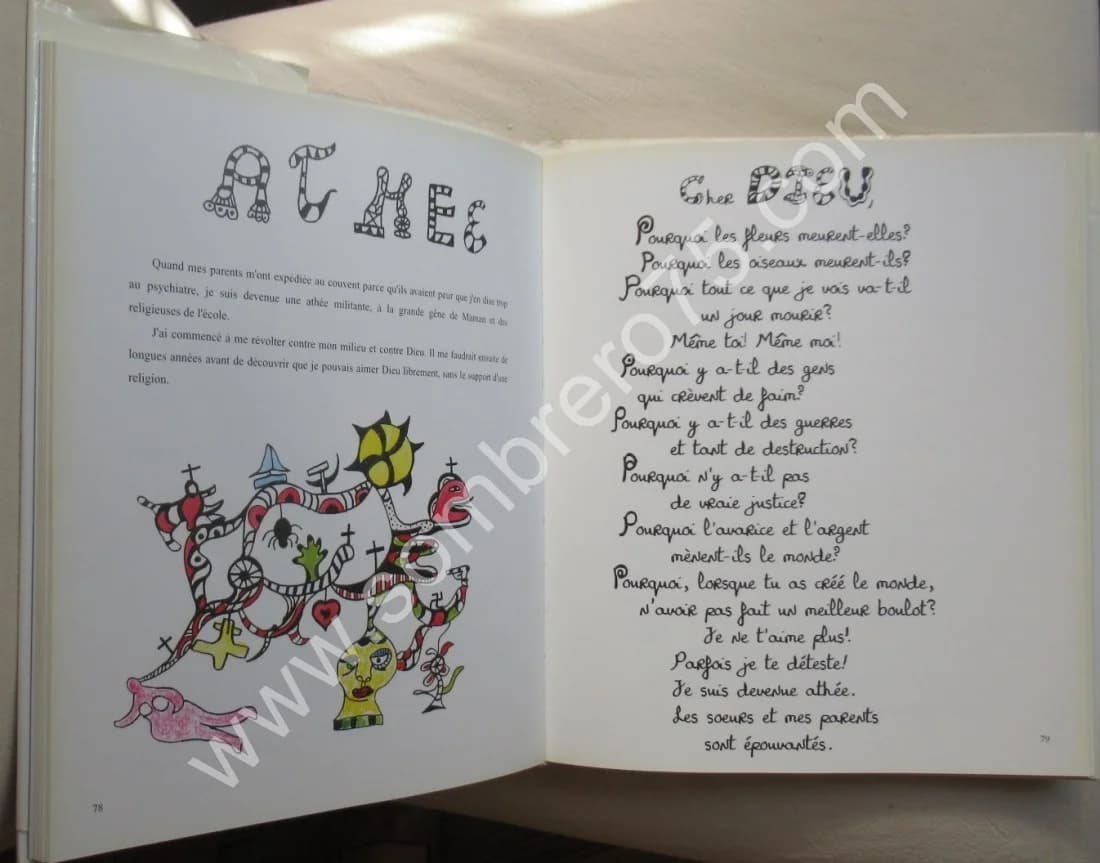 ATHEE
Quand mes parents m'ont expédiée au couvent parce qu'ils avaient peur que j'en dise trop
au psychiatre, je suis devenue une athée militante, à la grande gêne de Maman et des
religieuses de l'école.
J'ai commencé à me révolter contre mon milieu et contre Dieu. Il me faudrait ensuite de
longues années avant de découvrir que je pouvais aimer Dieu librement, sans le support d'une
religion.
78
Cher DIEU,
Pourquoi les fleurs meurent-elles?
Pourquoi les oiseaux meurent-ils?
Pourquoi tout ce que je vois va-t-il
un jour mourir?
Même toi! Même moi!
Pourquoi y a-t-il des gens
qui crèvent de faim?
Pourquoi y a-t-il des guerres
et tant de destruction?
Pourquoi n'y a-t-il pas
de vraie justice?
Pourquoi l'avarice et l'argent
mènent-ils le monde?
Pourquoi, lorsque tu as créé le monde,
n'avoir pas fait un meilleur boulot?
Je ne t'aime plus!
Parfois je te déteste!
Je suis devenue athée.
Les soeurs et mes parents
sont épouvantés.
79
www.sombrero75.com